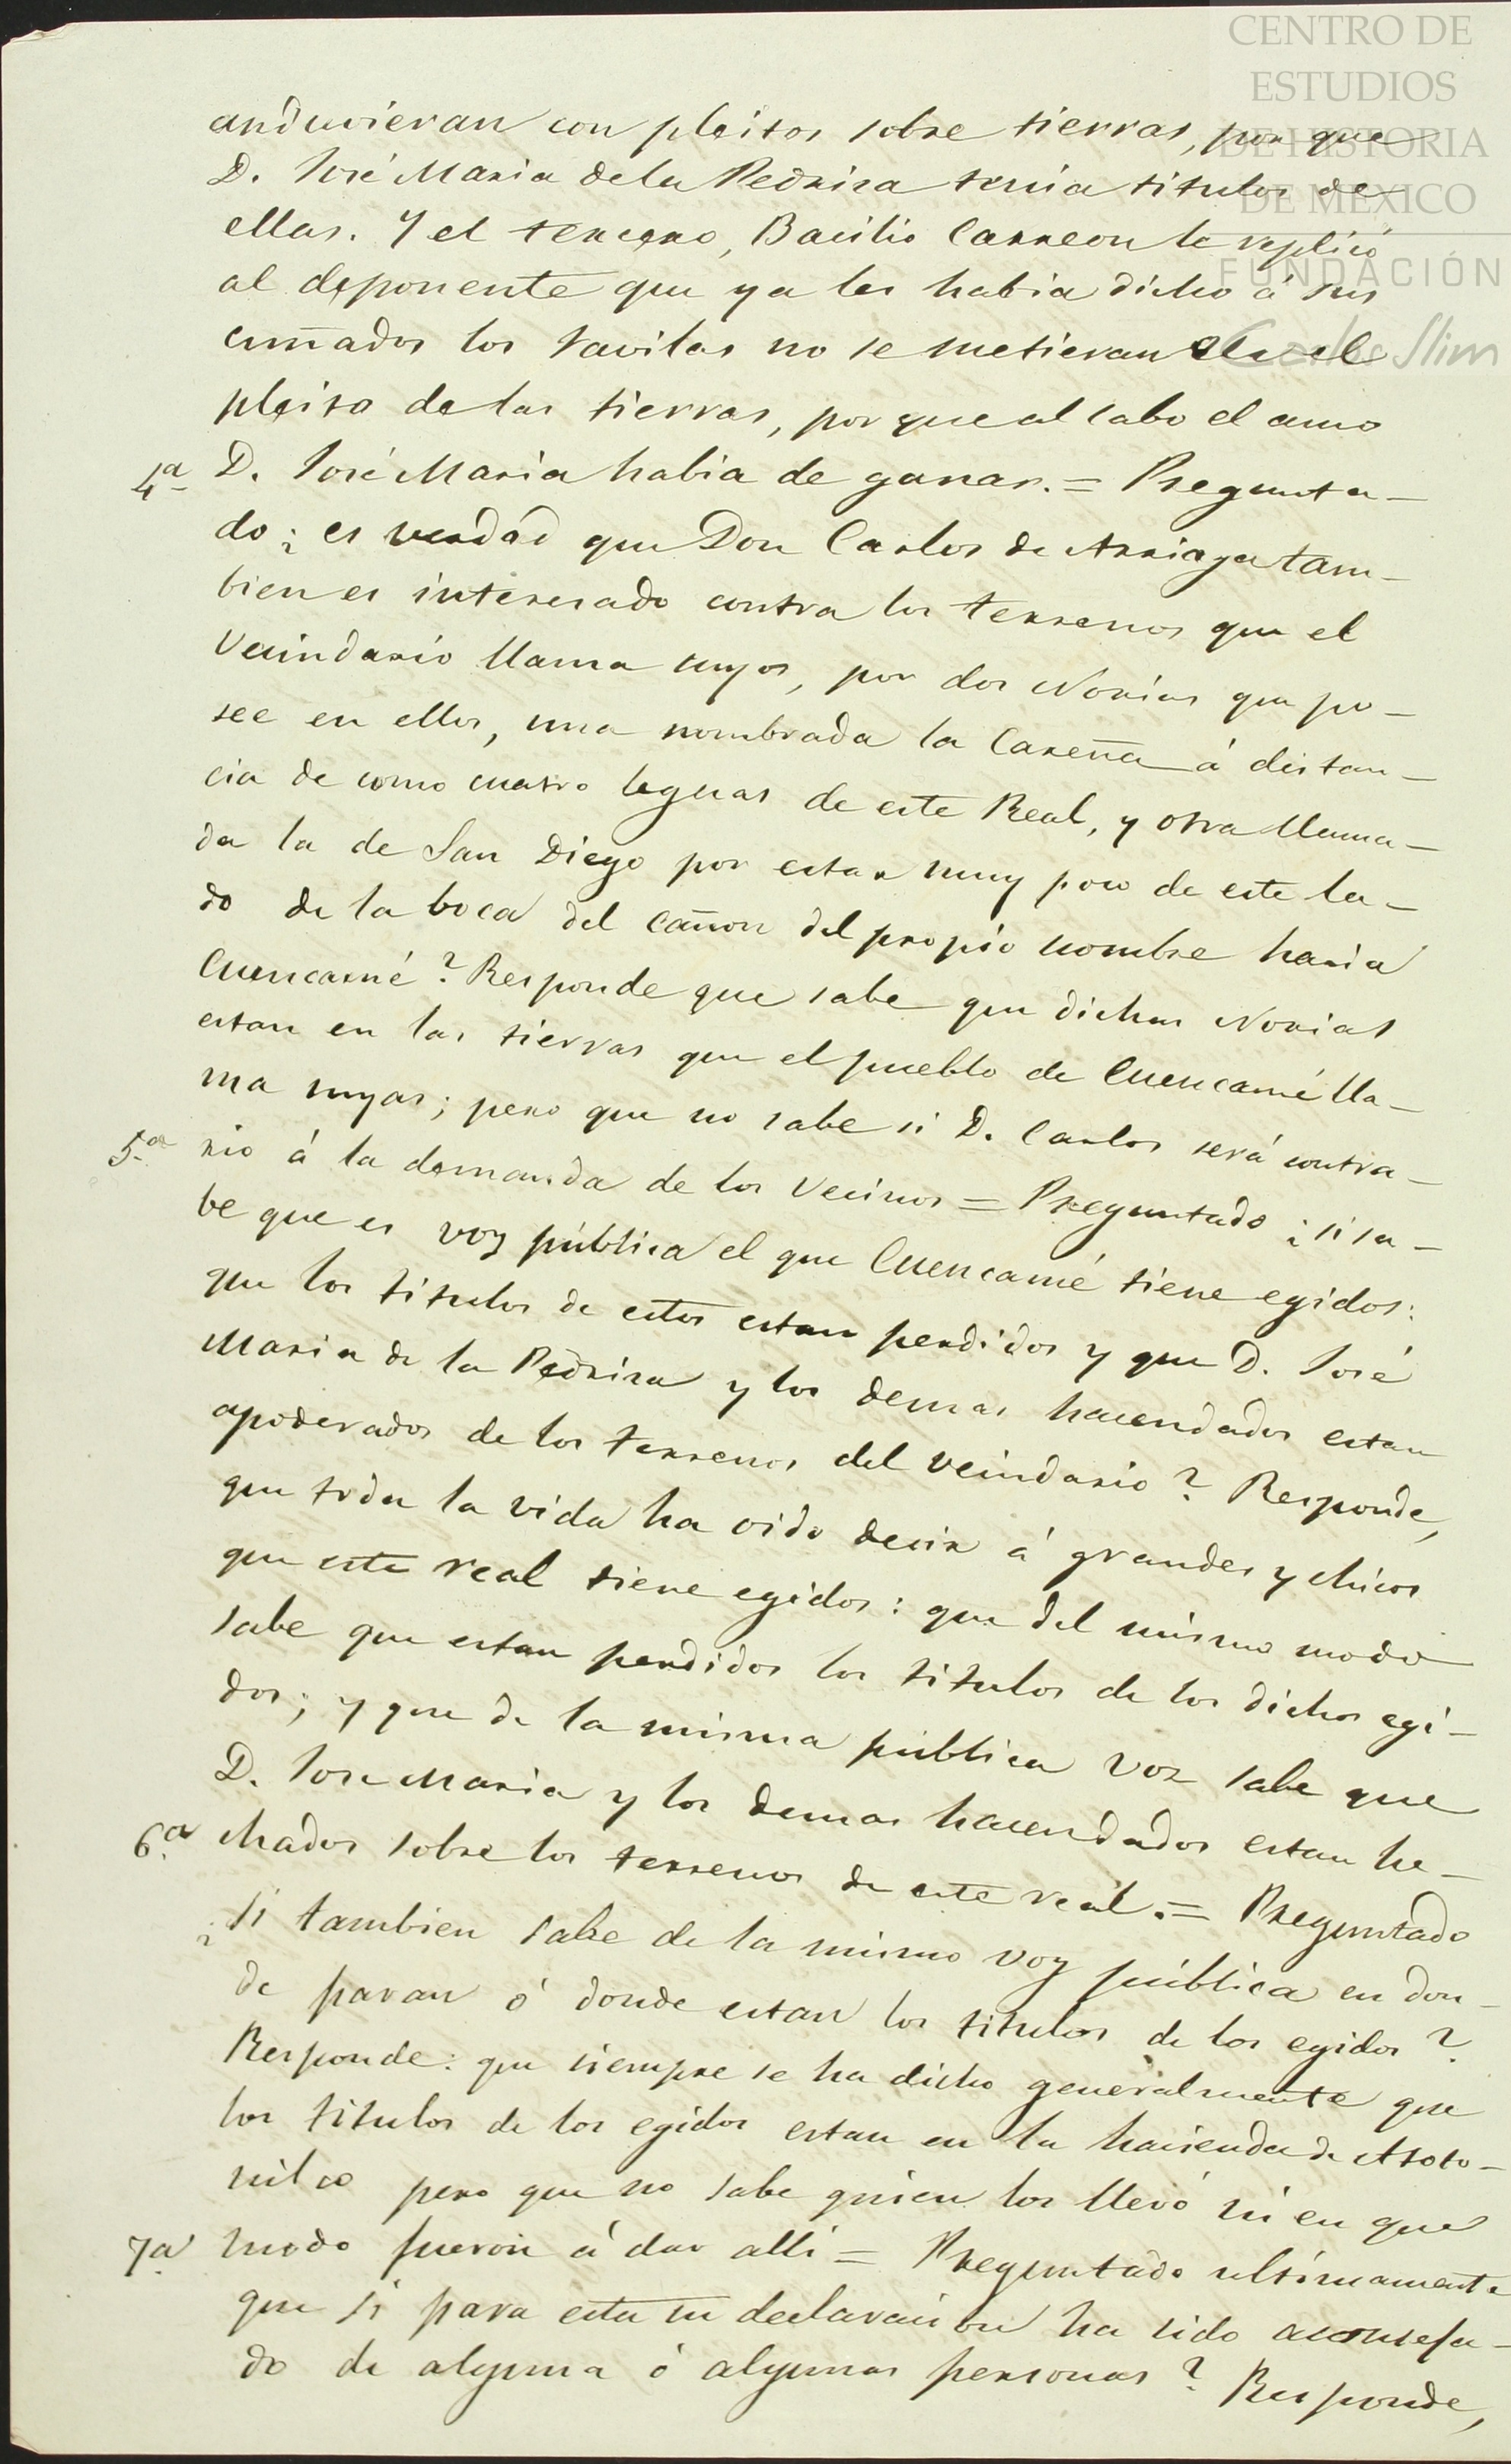 CENTRO DE
ESTUDIOS
DE HISTORIA
DE MÉXICO
FUNDACIÓN
Carlos Slim
anduvieran con pleitos sobre tierras, por que
D. José Maria de la Pedriza tenia titulos de
ellas. Y el tercero, Bacilio Carreon le replicó
al deponente que ya les habia dicho á sus
cuñados los Favilas no se metieran en el
pleito de las tierras, por que al cabo el amo
4ª D. José Maria habia de ganar. = Pregunta-
do ¿ es verdad que Don Carlos de Arriaga tam-
bien es interesado contra los terrenos que el
Vecindario llama suyos, por dos Norias que po-
see en ellos, una nombrada la Careña á distan-
cia de como cuatro leguas de este Real, y otra llama-
da la de San Diego por estar muy poco de este la-
do de la boca del cañon del propio nombre hacia
Cuencamé? Responde que sabe que dichas Norias
estan en las tierras que el pueblo de Cuencamé lla-
ma suyas; pero que no sabe si D. Carlos será contra-
5ª rio á la demanda de los Vecinos = Preguntado ¿ si sa-
be que es voz pública el que Cuencamé tiene egidos:
que los titulos de estos estan perdidos y que D. José
Maria de la Pedriza y los demas hacendados estan
apoderados de los terrenos del vecindario? Responde,
que toda la vida ha oido decir á grandes y chicos
que este real tiene egidos: que del mismo modo
sabe que estan perdidos los titulos de los dichos egi-
dos; y que de la misma pública voz sabe que
D. Jose Maria y los demas hacendados estan he-
6ª chados sobre los terrenos de este real. = Preguntado
¿ si tambien sabe de la misma voz pública en don-
de paran ó donde estan los titulos de los egidos?
Responde: que siempre se ha dicho generalmente que
los titulos de los egidos estan en la hacienda de Atoto-
nilco pero que no sabe quien los llevó ni en que
7ª modo fueron á dar alli = Preguntado ultimamente
que si para esta su declaracion ha sido aconseja-
do de alguna ó algunas personas? Responde,